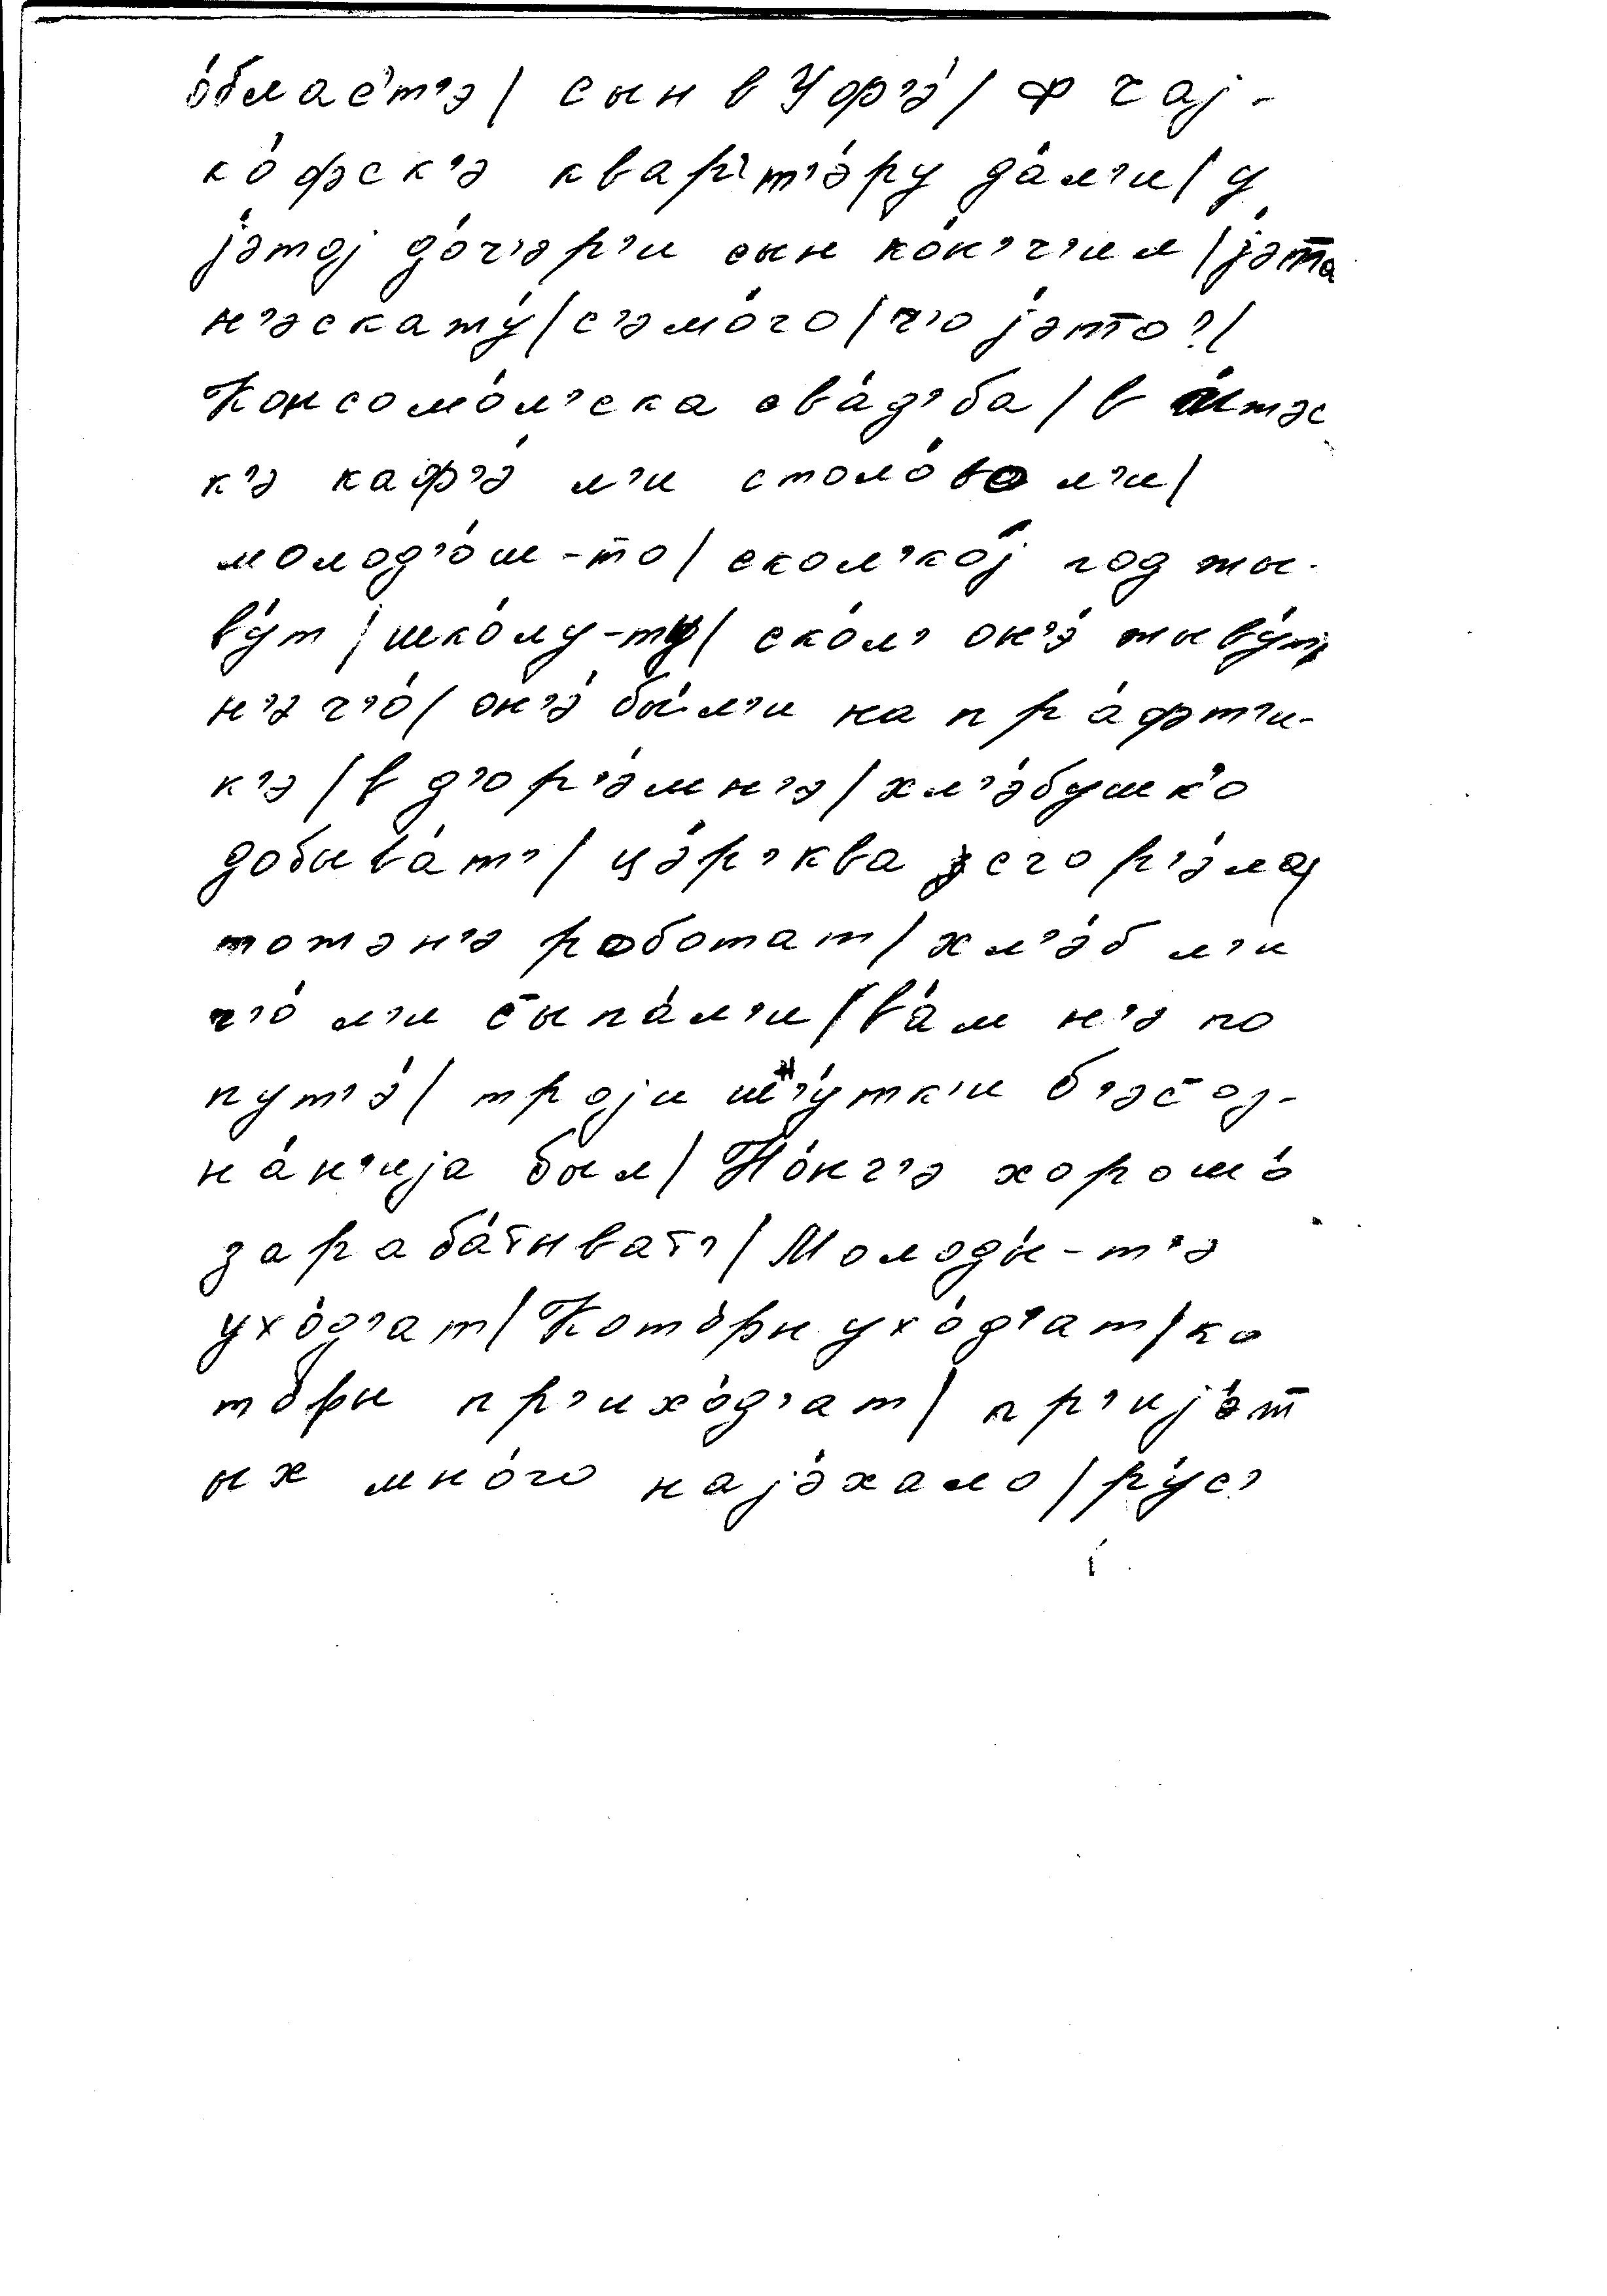 о́блас'т'э / сын в Уфр'э́ / ф чај-
ко́фск'э квар'т'э́ру да́л'и / у
јэ́тој до́ч'эр'и сын ко́н'ч'ил / јэ́та
н'э скажу́ / с'эмо́го / ч'о јэ́то? /
Консомо́л'ска сва́д'ба /
к'э каф'э́ л'и столо́во л'и /
молод'о́ш-то / скол'ко́ј год жы-
ву́т / шко́лу-ту / ско́л' он'э́ жыву́т
н'э ч'о́ / он'э́ бы́л'и на пра́фт'и-
к'э / в д'ор'э́мн'э / хл'э́бушко
добыва́т' / цэ́р'ква сгор'э́ла /
тожэ н'э роботат / хл'э́б л'и
ч'о́ л'и сыпа́л'и / ва́м н'э по
пут'э́ / троји ш'у́тк'и б'эсоз-
на́н'ија был / Но́нч'э хорошо́
зараба́тыват' / Молоды́-т'э
ухо́д'ат / Кото́ры ухо́д'ат / ко
то́ры пр'ихо́д'ат / пр'ијэ́т
ых мно́го најэ́хало / ру́с'